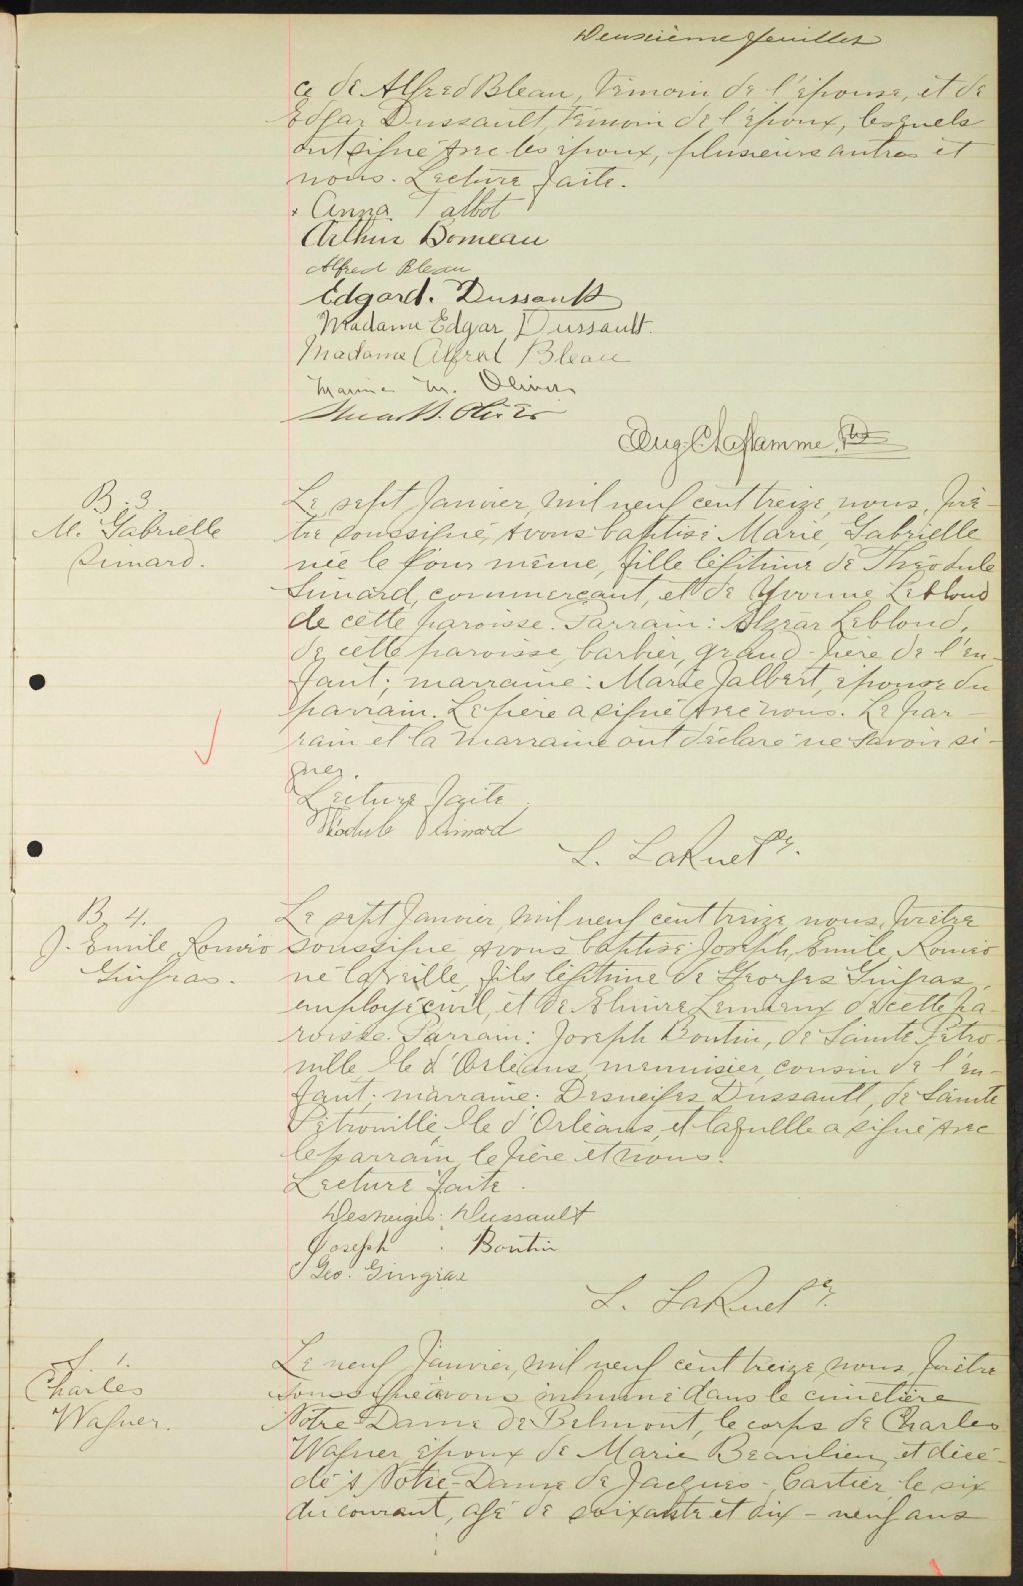 Deuxième feuillet
ce de Alfred Bleau, témoin de l'épouse, et de
Edgar Dussault, témoin de l'époux, lesquels
ont signé avec les époux, plusieurs autres et
nous. Lecture faite.
Anna Talbot
Arthur Bomeau
Alfred Bleau
Edgard. Dussault
Madame Edgar Dussault.
Madame Alfred Bleau
M. Olivier
Eug. C. Laflamme, Ptre
B. 3
M. Gabrielle
Simard.
Le sept Janvier, mil neuf cent treize, nous, prê-
tre soussigné, avons baptisé Marie, Gabrielle
née le jour même, fille légitime de Théodule
Simard, commerçant, et de Yvonne Leblond
de cette paroisse. Parrain: Elzéar Leblond,
de cette paroisse, barbier, grand-père de l'en-
fant; marraine: Marie Jalbert, épouse du
parrain. Le père a signé avec nous. Le par-
rain et la marraine ont déclaré ne savoir si-
gner.
Lecture faite.
Théodule Simard
L. LaRue Ptr.
B. 4.
J. Emile Roméo
Gingras.
Le sept Janvier, mil neuf cent treize, nous, prêtre
soussigné, avons baptisé Joseph, Emile Roméo
né la veille, fils légitime de Georges Gingras,
employé civil, et de Elmire Lemieux de cette pa-
roisse. Parrain: Joseph Boutin, de Sainte Pétro-
nille, Ile d'Orléans, menuisier, cousin de l'en-
fant; marraine: Desneiges Dussault, de Sainte
Pétronille, Ile d'Orléans, et laquelle a signé avec
le parrain, le père et nous.
Lecture faite.
Desneiges Dussault
Joseph Boutin
Geo. Gingras
L. LaRue Ptr.
S. 1.
Charles
Wagner.
Le neuf Janvier, mil neuf cent treize, nous, prêtre
soussigné avons inhumé dans le cimetière
Notre-Dame de Belmont, le corps de Charles
Wagner, époux de Marie Beaulieu, et décé-
dé à Notre-Dame de Jacques-Cartier, le six
du courant, agé de soixante et dix-neuf ans